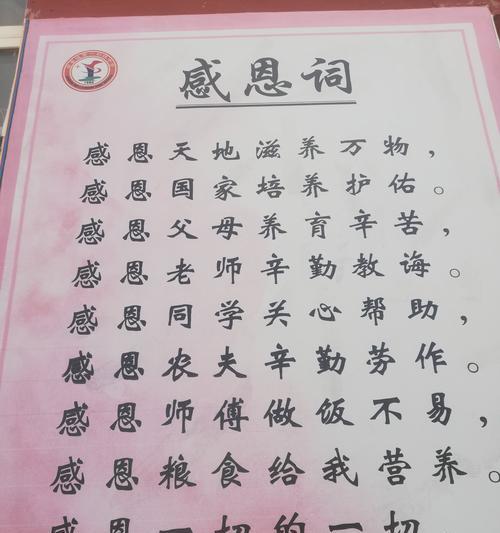 感恩词
感恩天地滋养万物，
感恩国家培养护佑。
感恩父母养育辛苦，
感恩老师辛勤教诲。
感恩同学关心帮助，
感恩农夫辛勤劳作。
感恩师傅做饭不易，
感恩粮食给我营养。
感恩一切的一切